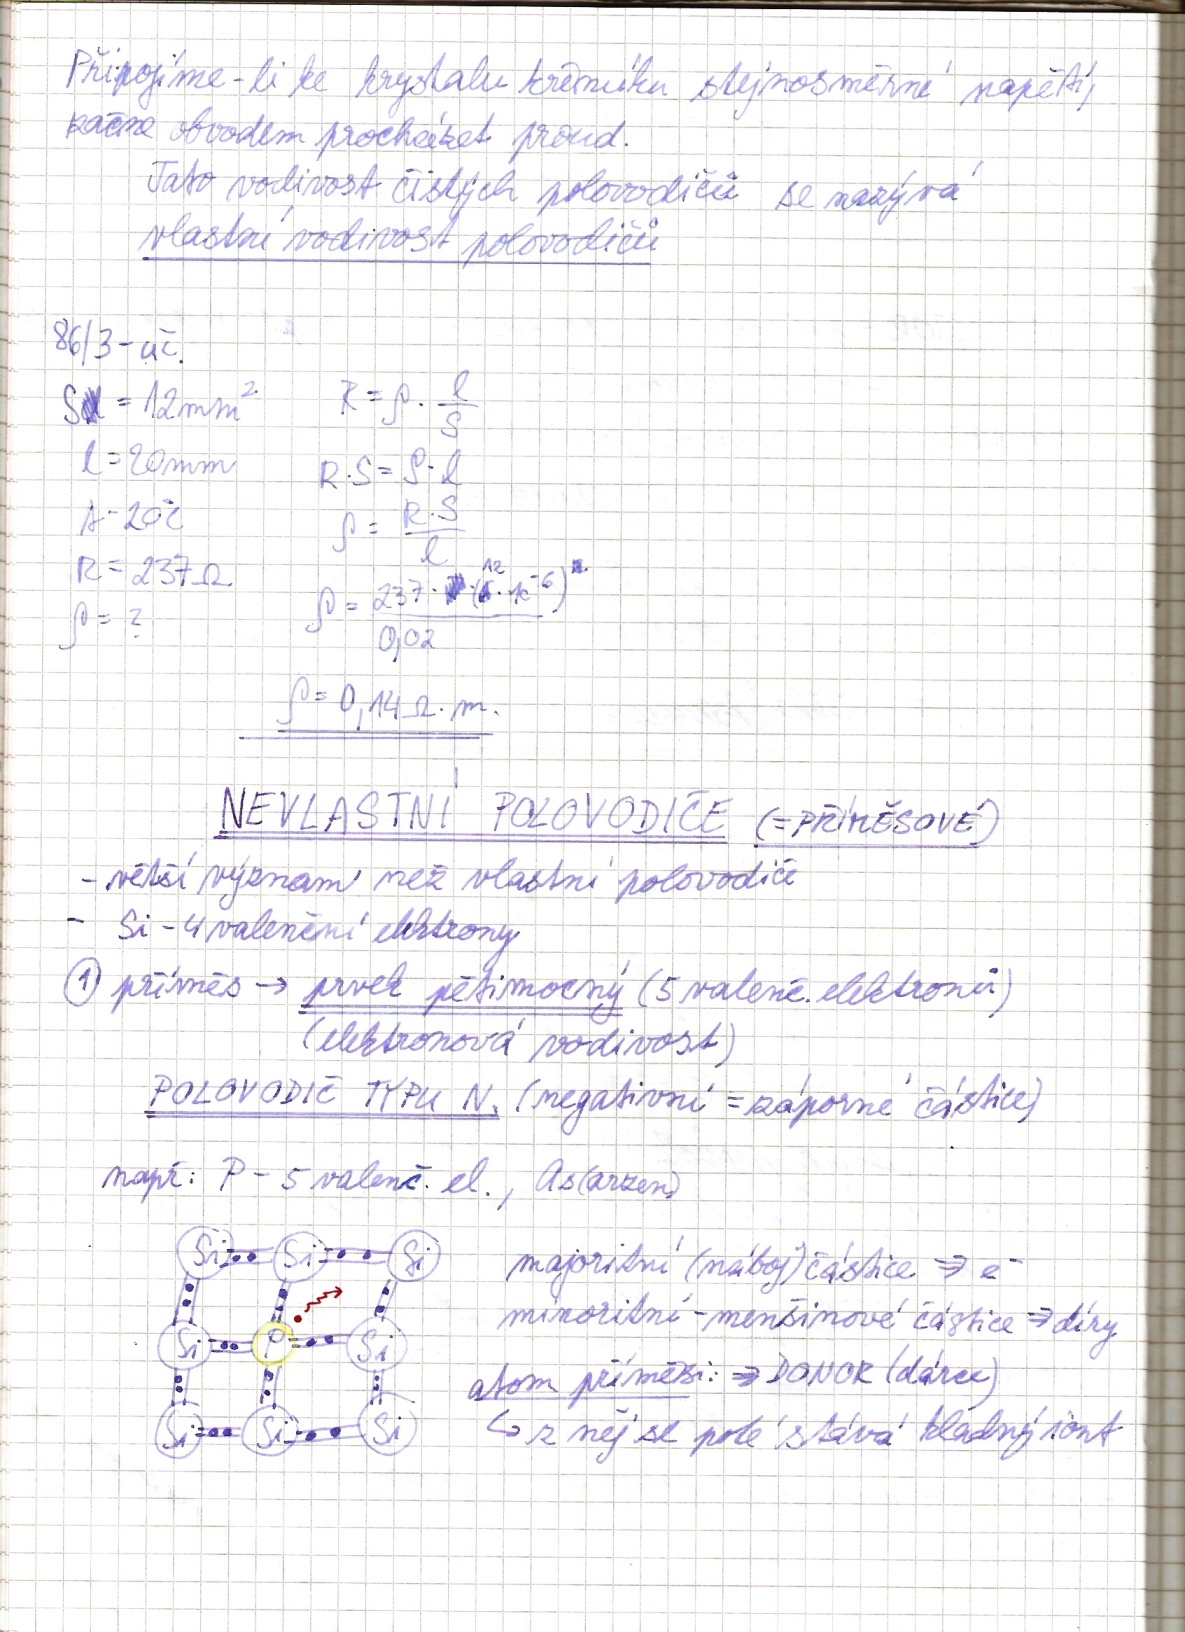 Připojíme-li ke krystalu křemíku stejnosměrné napětí,
začne obvodem procházet proud.
Tato vodivost čistých polovodičů se nazývá
vlastní vodivost polovodičů
86/3-uč.
S = 12mm²
l = 20mm
t = 20°C
R = 237Ω
ρ = ?
R = ρ · l/S
R·S = ρ·l
ρ = R·S/l
ρ = 237 · (12 · 10⁻⁶)/0,02
ρ = 0,14Ω·m.
NEVLASTNÍ POLOVODIČE (=PŘÍMĚSOVÉ)
- větší význam než vlastní polovodiče
- Si - 4 valenční elektrony
① příměs → prvek pětimocný (5 valenč. elektronů)
(elektronová vodivost)
POLOVODIČ TYPU N, (negativní = záporné částice)
např: P - 5 valenč. el., As (arzen)
Si Si Si
Si P Si
Si Si Si
majoritní (náboj) částice ⇒ e⁻
minoritní - menšinové částice ⇒ díry
atom příměsi: ⇒ DONOR (dárce)
↳ z něj se poté stává kladný iont